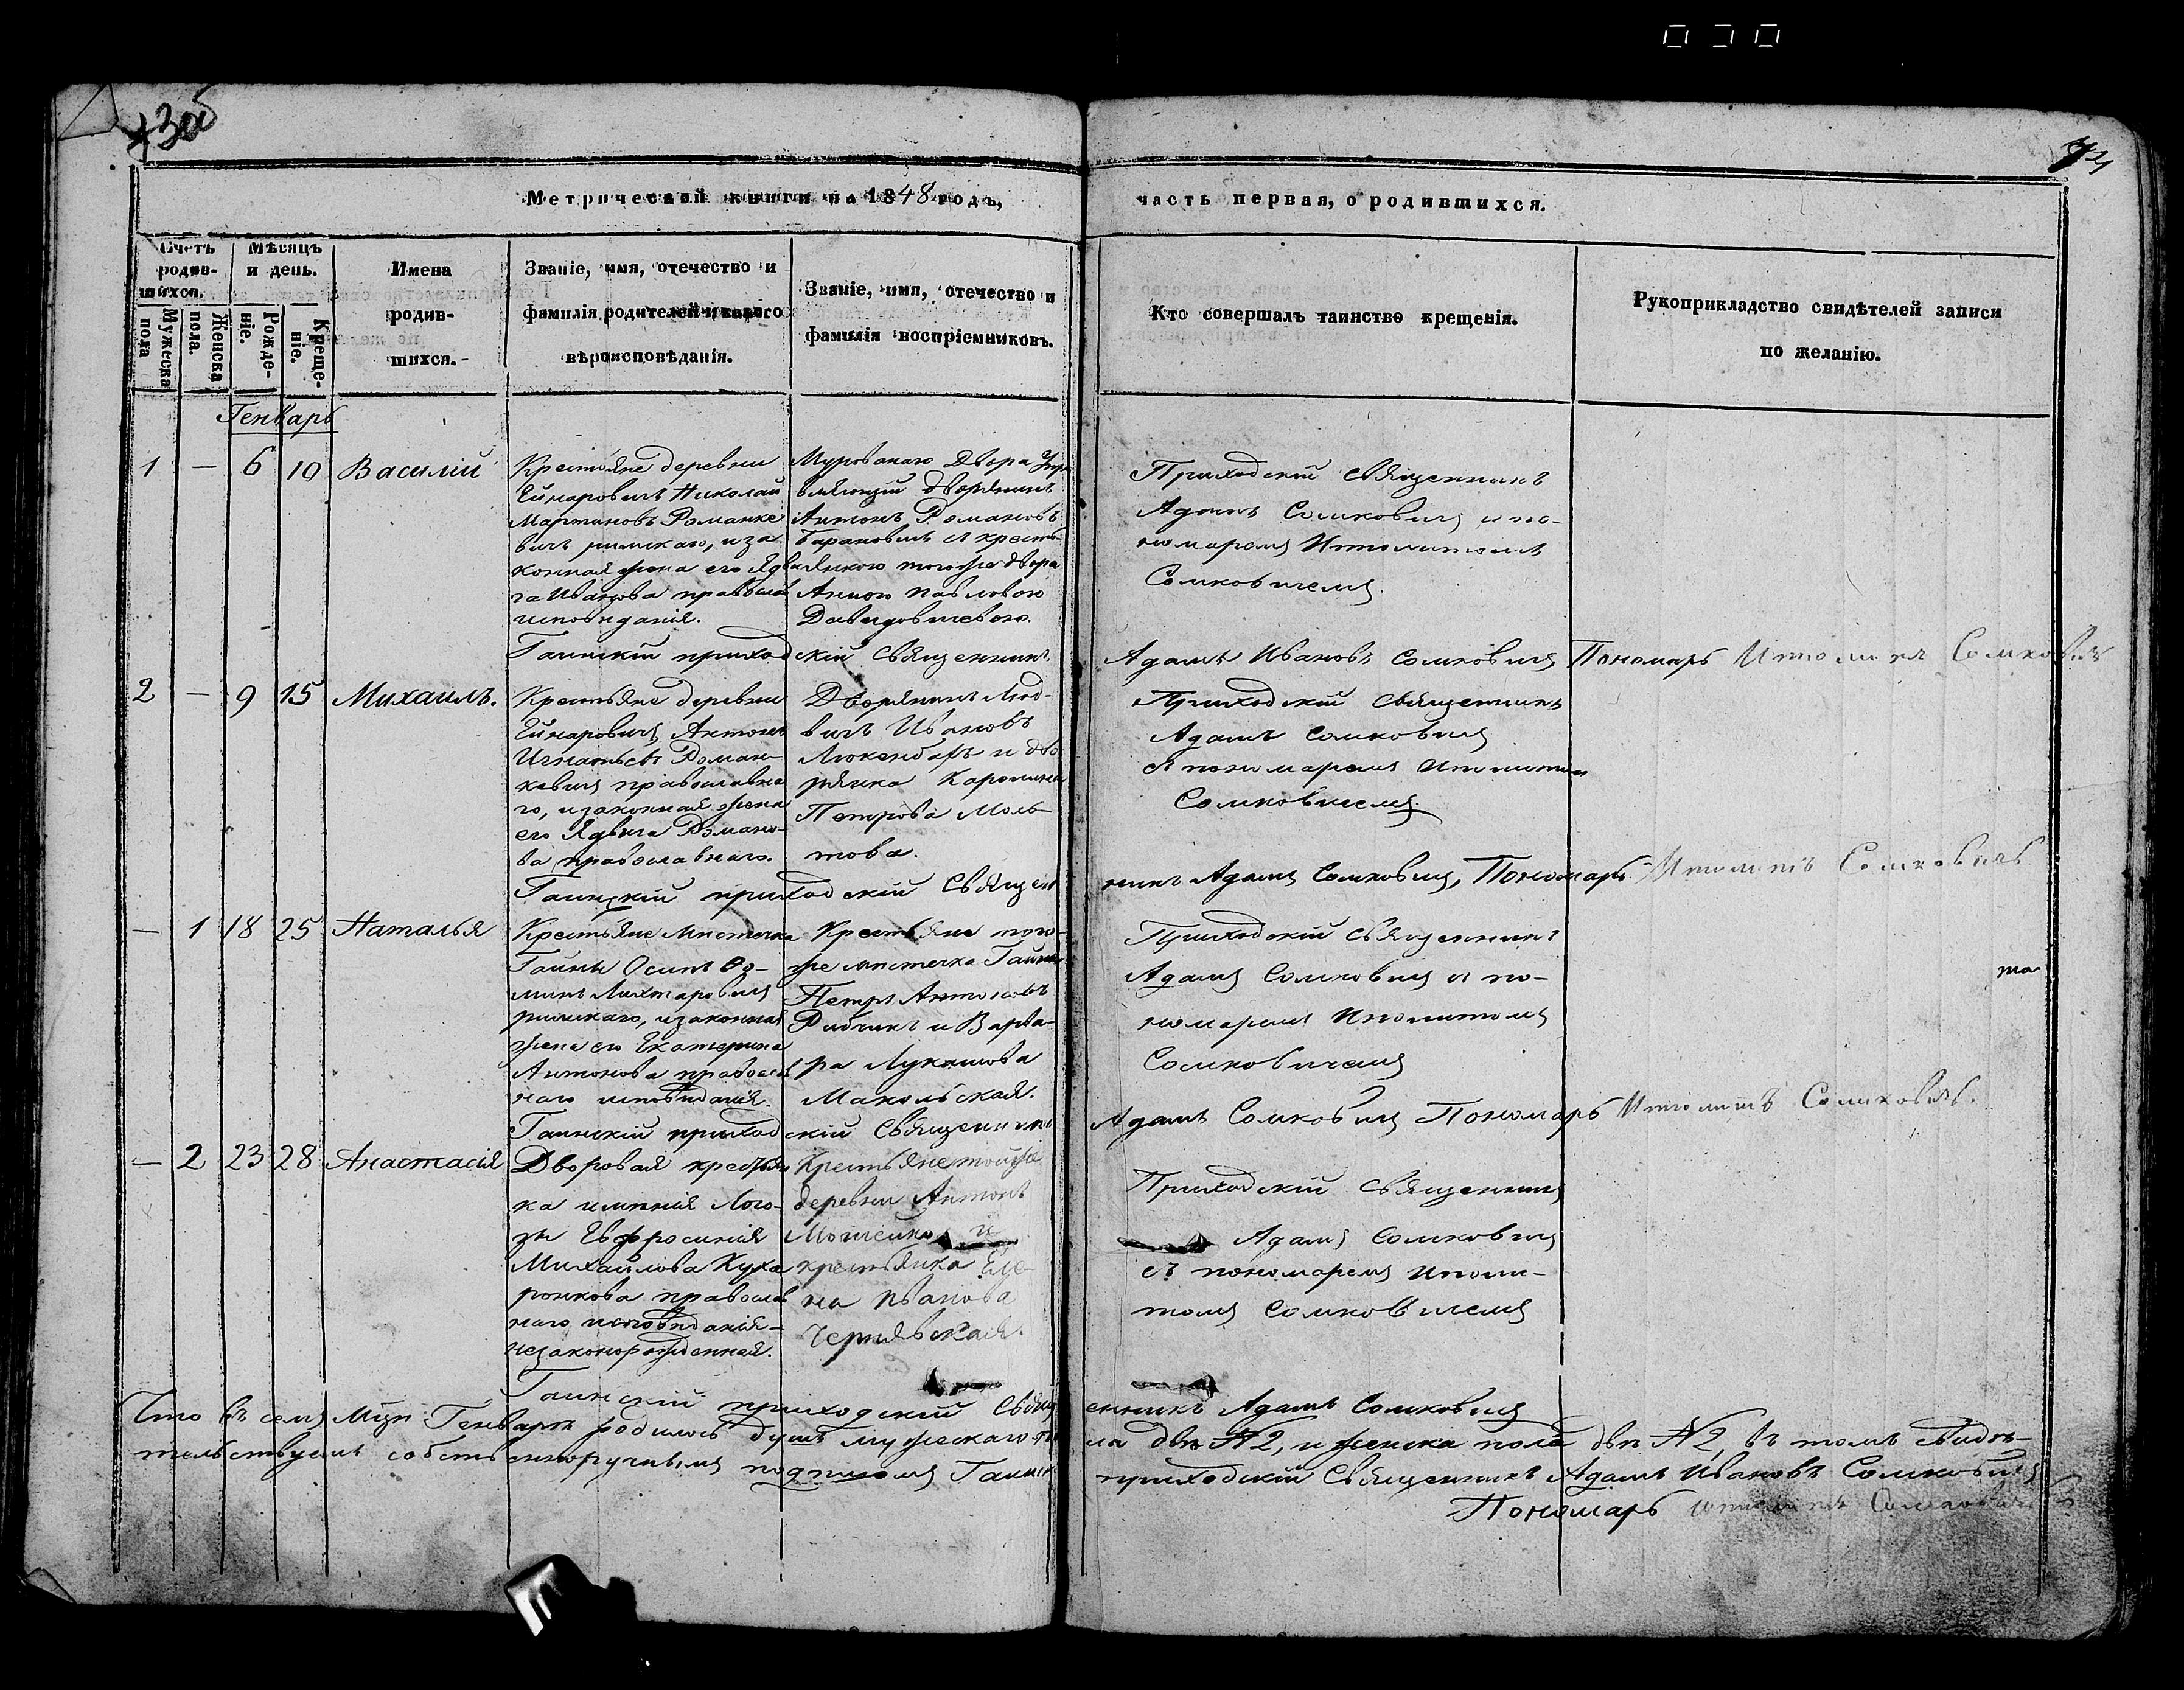 Метрической книги на 1848 годъ, часть первая, о родившихся.
Счетъ родив-шихся.
Мужеска пола
Женска пола.
Мѣсяцъ и день.
Рожде-ніе.
Креще-ніе.
Имена
родив-
шихся.
Званіе, имя, отечество и
фамилія родителей и какого
вѣроисповѣданія.
Званіе, имя, отечество и
фамилія воспріемниковъ.
Кто совершалъ таинство крещенія.
Рукоприкладство свидѣтелей записи
по желанію.
Генварь
1 — 6 10 Василій
Крестьяне деревни
Николай
Мартиновъ Романке
вичъ римскаго, и за
конная жена его Ядви
га Иванова православ
исповѣданія.
Мурованаго Двора Упра
вляющій дворянинъ
Антонъ Романовъ
Барановичъ с крестья
янкою тогоже двора
Анною Павловою
Давидовичевою.
Приходскій священникъ
Адамъ Сомковичъ и по-
номаремъ Иполитомъ
Сомковичемъ.
Гаинскій приходскій священникъ Адамъ Ивановъ Сомковичъ Пономарь Иполитъ Сомковичъ
2 — 9 15 Михаилъ.
Крестьяне деревни
Антонъ
Игнатьевъ Роман-
кевичъ православна
го, и законная жена
его Ядвига Романо-
ва православнаго.
Дворянинъ Люд-
вигъ Ивановъ
и дво
рянка Каролина
Петрова Моль-
това.
Приходскій священникъ
Адамъ Сомковичъ
с пономаремъ Иполитом
Сомковичемъ.
Гаинскій приходскій священникъ Адамъ Сомковичъ, Пономарь Иполитъ Сомковичъ
— 1 18 25 Наталья
Крестьяне мѣстечка
Гайны Осипъ Фо-
минъ Лихтаровичъ
римскаго, и законная
жена его Екатерина
Антонова православ
наго исповѣданія.
Крестьяне того-
же мѣстечка Гайны
Петръ Антоновъ
Рибчикъ и Варва-
ра Лукашова
Макольская.
Приходскій священникъ
Адамъ Сомковичъ и по-
номаремъ Иполитомъ
Сомковичемъ
Гаинскій приходскій Священникъ Адамъ Сомковичъ Пономарь Иполитъ Сомковичъ.
— 2 23 28 Анастасія
Дворовая крестьян
ка имѣнія Лого-
зы Евфросинія
Михайлова Куха
ронкова православ
наго исповѣданія-
незаконорожденная.
Крестьяне тойже
деревни Антонъ
и
крестьянка Еле-
на Иванова
Чернявская.
Приходскій священникъ
Адамъ Сомковичъ
с пономаремъ Иполи-
томъ Сомковичемъ
Гаинскій приходскій Священникъ Адамъ Сомковичъ
Что въ семъ Мцѣ Генварѣ родилось душъ мужескаго пола двѣ № 2, и женска пола двѣ № 2, въ томъ свидѣ-
тельствуемъ собственноручнымъ подписомъ Гаинскій приходскій Священникъ Адамъ Ивановъ Сомковичъ
Пономарь Иполитъ Сомковичъ